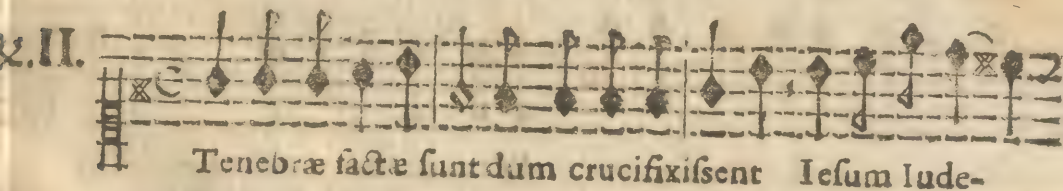 ℟.II.
Tenebræ factæ sunt dum crucifixiſsent Ieſum Iude-